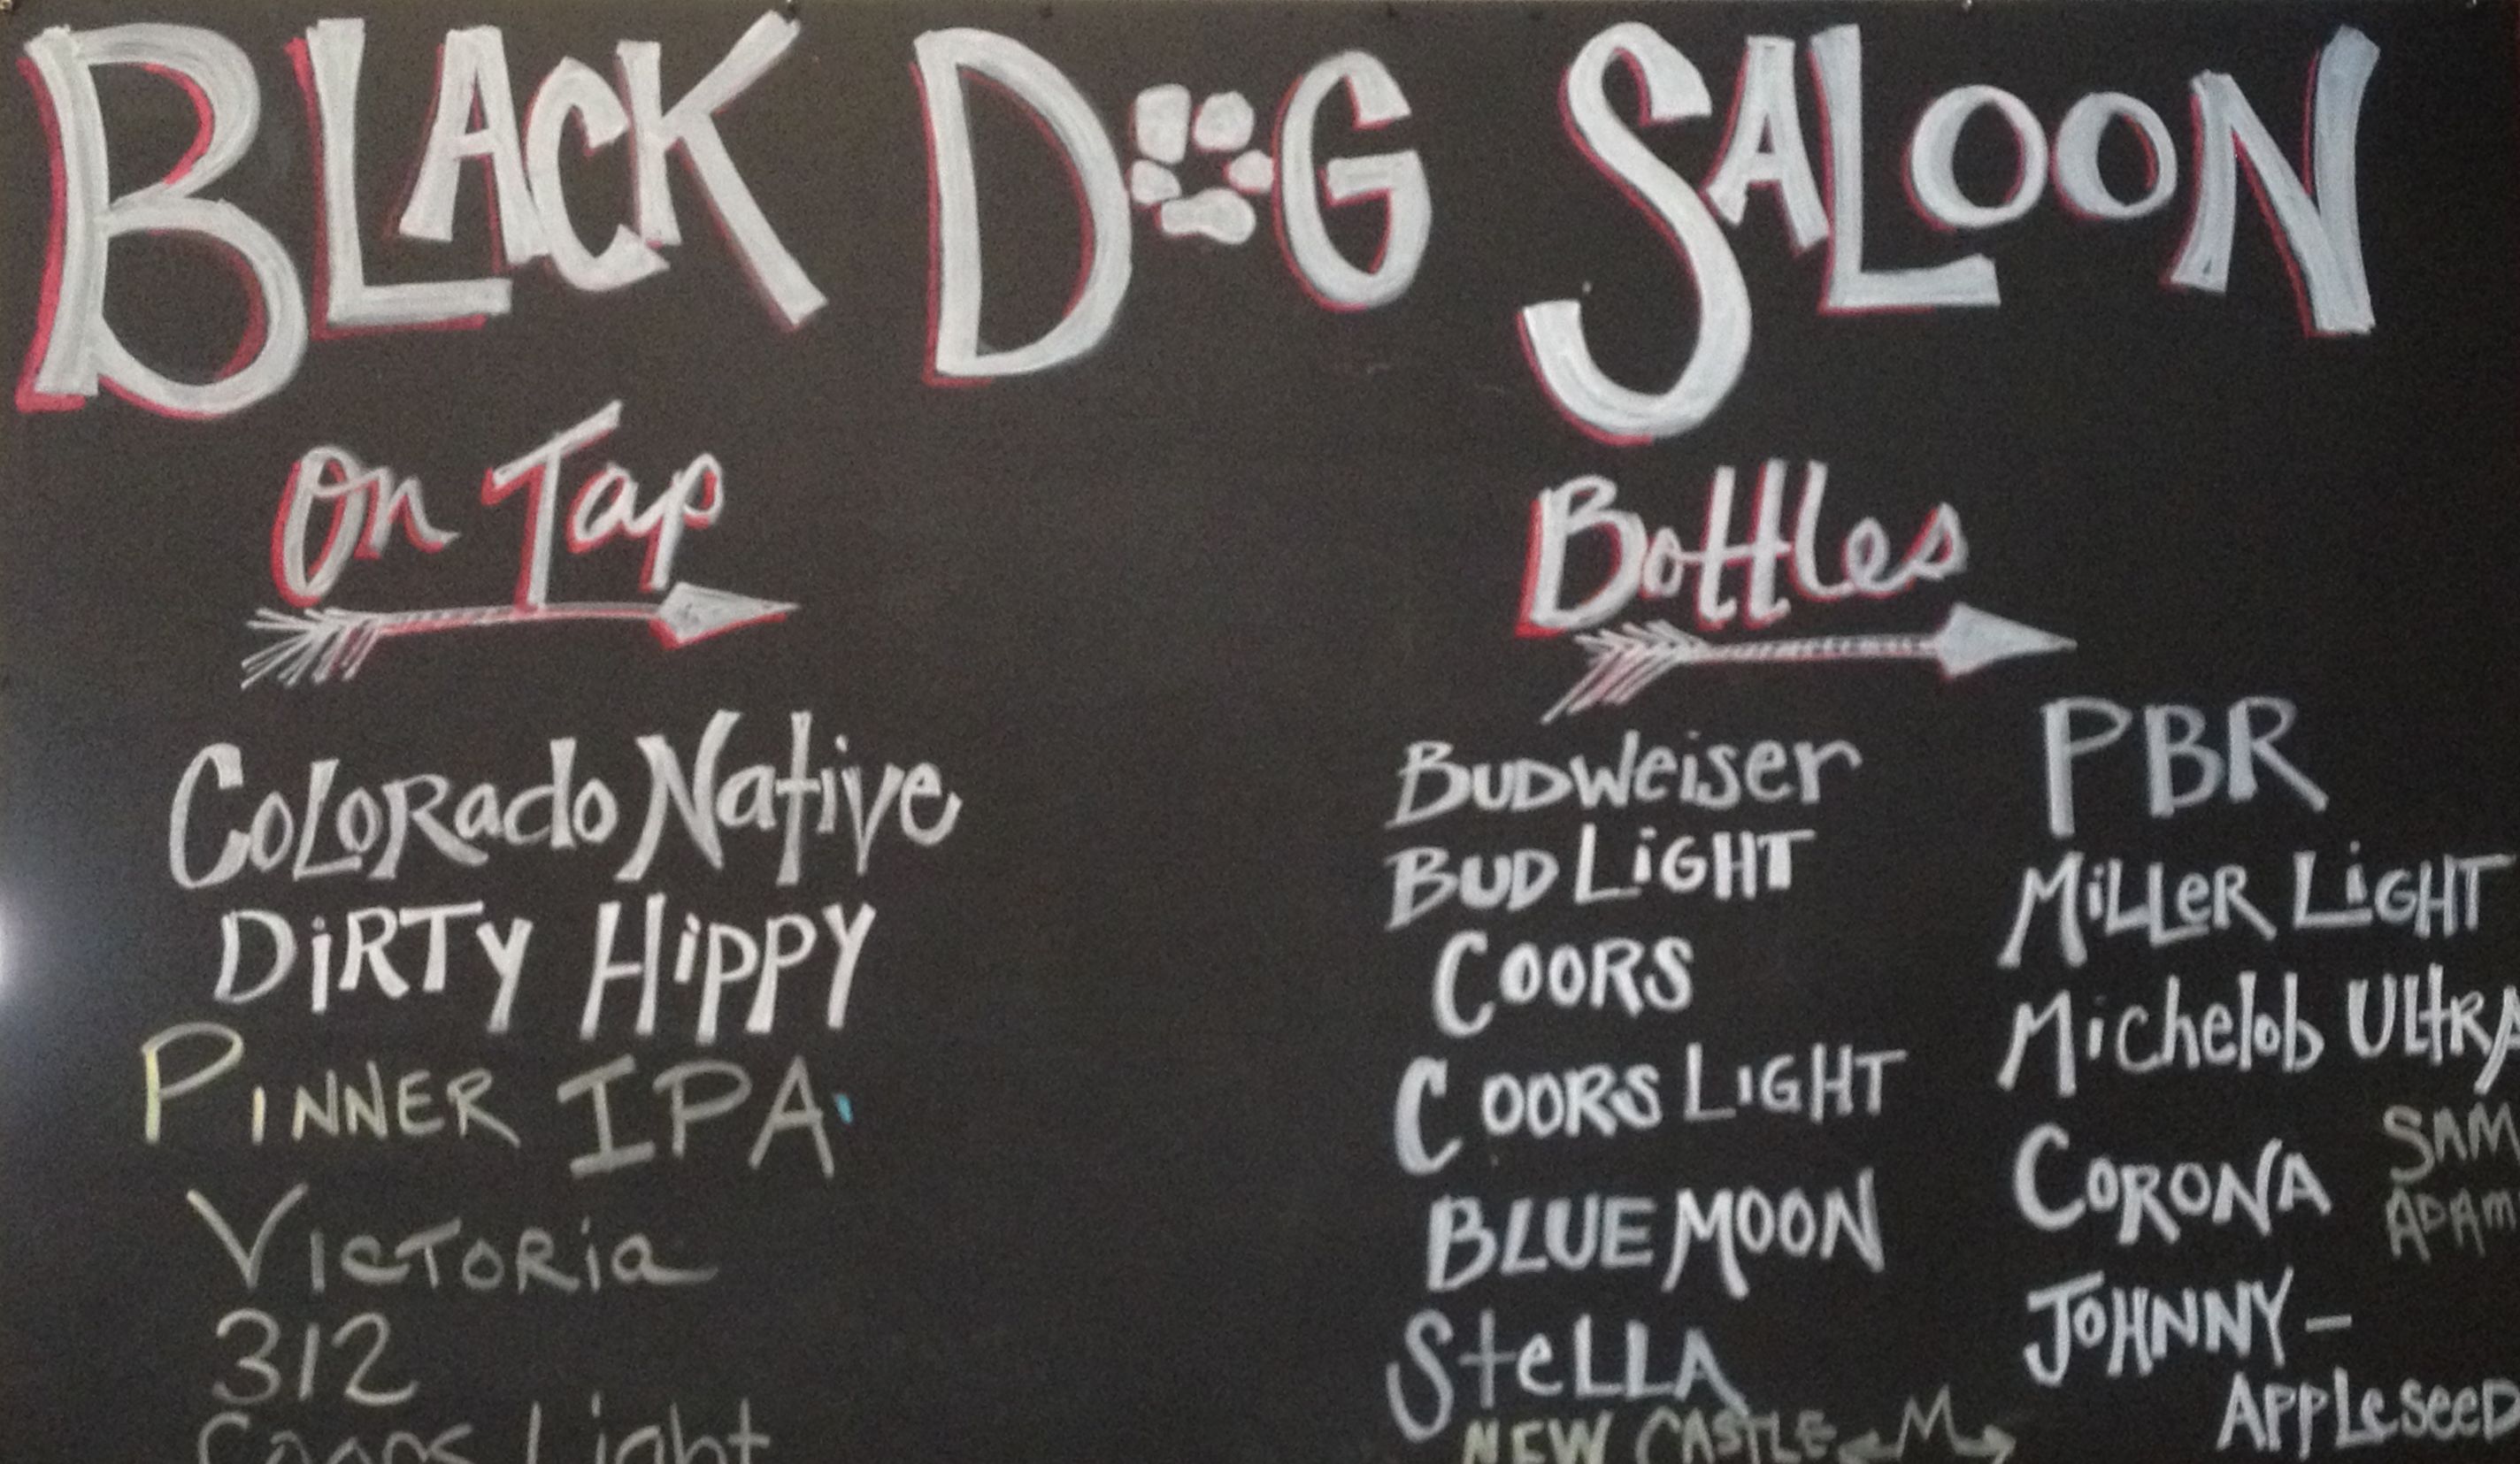 BLACK DOG SALOON
On Tap
Colorado Native
DiRTY HiPPY
PINNER IPA
VICTORia
312
Coors Light
Bottles
BUDWeiser
BUD LiGHT
COORS
COORS LIGHT
BLUE MOON
SteLLA
NEW CASTLE
PBR
MiLLeR LiGHT
Michelob ULtRA
CORONA
SAM
ADAM
JOHNNY –
APPLeseeD